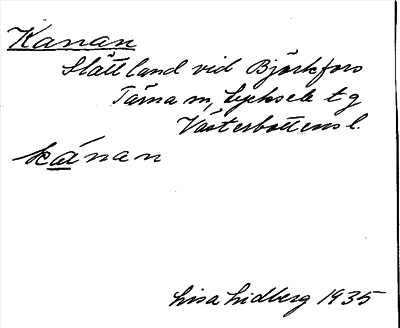 Kanan
Slåttland vid Björkfors
Tärna sn, Lycksele tg
Västerbottens l.
kánan
Lisa Lidberg 1935